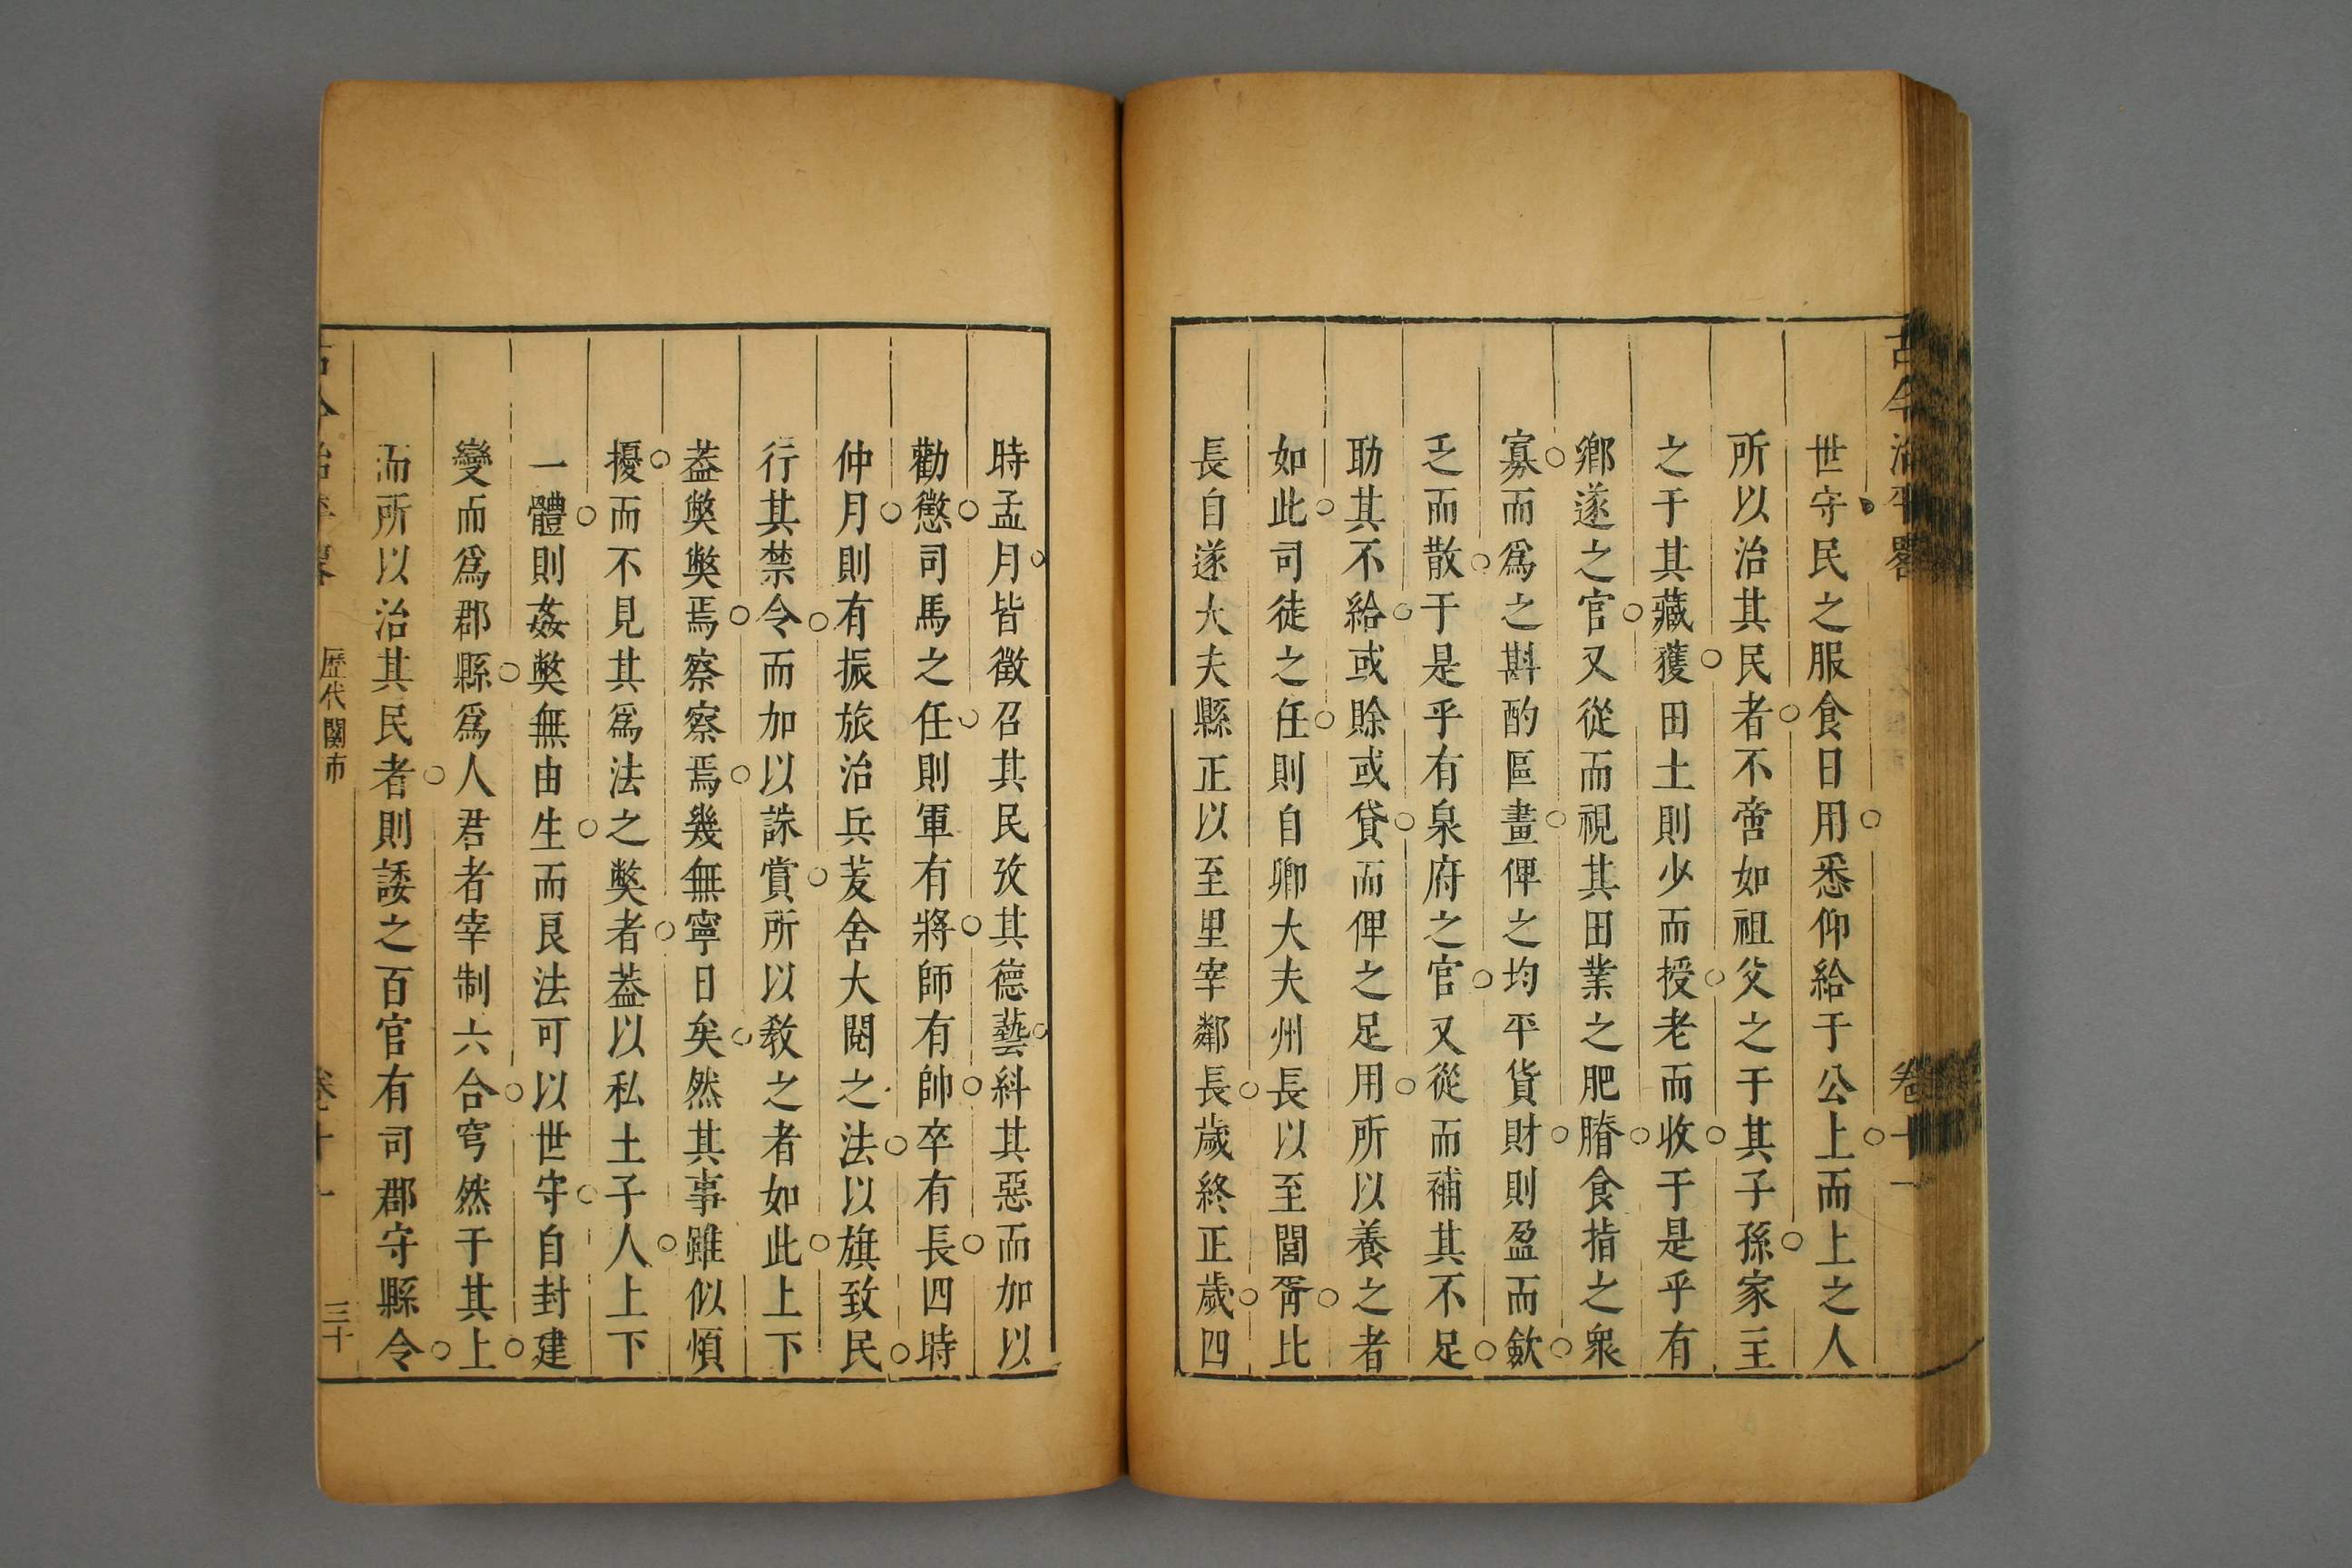 古今治平畧
卷十一
世守民之服食日用悉仰給于公上而上之人
所以治其民者不啻如祖父之于其子孫家主
之于其藏獲田土則少而授老而收于是乎有
鄉遂之官又從而視其田業之肥瘠食指之衆
寡而爲之斟酌區畫俾之均平貨財則盈而歛
乏而散于是乎有泉府之官又從而補其不足
助其不給或賒或貸而俾之足用所以養之者
如此司徒之任則自卿大夫州長以至閭胥比
長自遂大夫縣正以至里宰鄰長歲終正歲四
時孟月皆徵召其民攷其德藝糾其惡而加以
勸懲司馬之任則軍有將師有帥卒有長四時
仲月則有振旅治兵茇舍大閱之法以旗致民
行其禁令而加以誅賞所以敎之者如此上下
葢弊弊焉察察焉幾無寧日矣然其事雖似煩
擾而不見其爲法之弊者葢以私土子人上下
一體則姦弊無由生而良法可以世守自封建
變而爲郡縣爲人君者宰制六合穹然于其上
而所以治其民者則諉之百官有司郡守縣令
古今治平畧
歷代關市
卷十一
三十